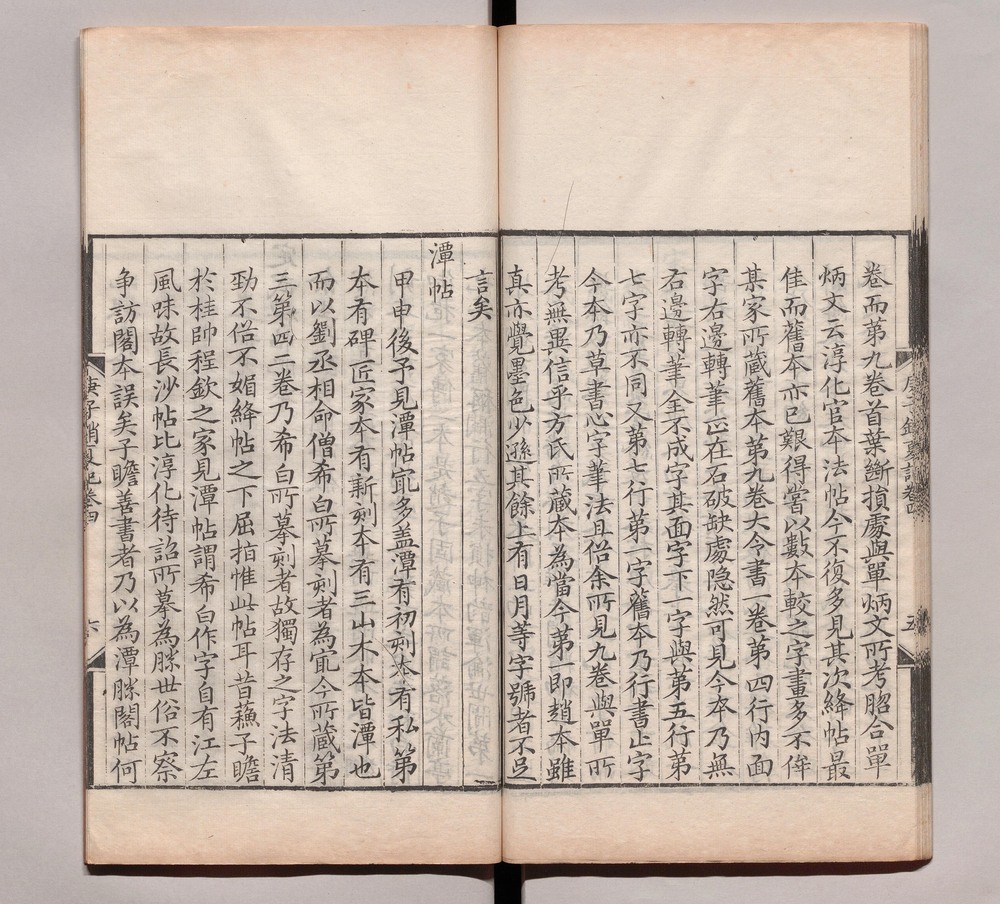 卷而第九卷首葉斷損處與單炳文所考脗合單
炳文云淳化官本法帖今不復多見其次絳帖最
佳而舊本亦已艱得嘗以數本較之字畫多不侔
某家所藏舊本第九卷大令書一卷第四行內面
字右邊轉筆正在石破缺處隐然可見今本乃無
右邊轉筆全不成字其面字下一字與第五行第
七字亦不同又第七行第一字舊本乃行書止字
今本乃草書心字筆法且俗余所見九卷與單所
考無異信乎方氏所藏本為當今第一即趙本雖
真亦覺墨色少遜其餘上有日月等字號者不足
言矣
潭帖
甲申後予見潭帖㝡多盖潭有初刻本有私第
本有碑匠家本有新刻本有三山木本皆潭也
而以劉丞相命僧希白所摹刻者為㝡今所藏第
三第四二卷乃希白所摹刻者故獨存之字法清
勁不俗不媚絳帖之下屈指惟此帖耳昔蘓子瞻
於桂帥程欽之家見潭帖謂希白作字自有江左
風味故長沙帖比淳化待詔所摹為勝世俗不察
争訪閣本誤矣子瞻善書者乃以為潭勝閣帖何
庚子銷夏記卷四
六
五